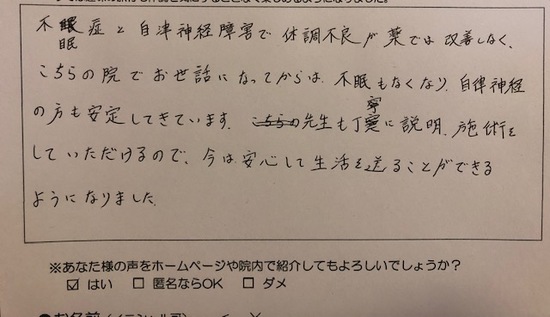 不眠症と自律神経障害で体調不良が薬では改善しなく、
こちらの院でお世話になってからは、不眠もなくなり、自律神経
の方も安定してきています。先生も丁寧に説明、施術を
していただけるので、今は安心して生活を送ることができる
ようになりました。
※あなた様の声をホームページや院内で紹介してもよろしいでしょうか？
☑ はい □ 匿名ならOK □ ダメ